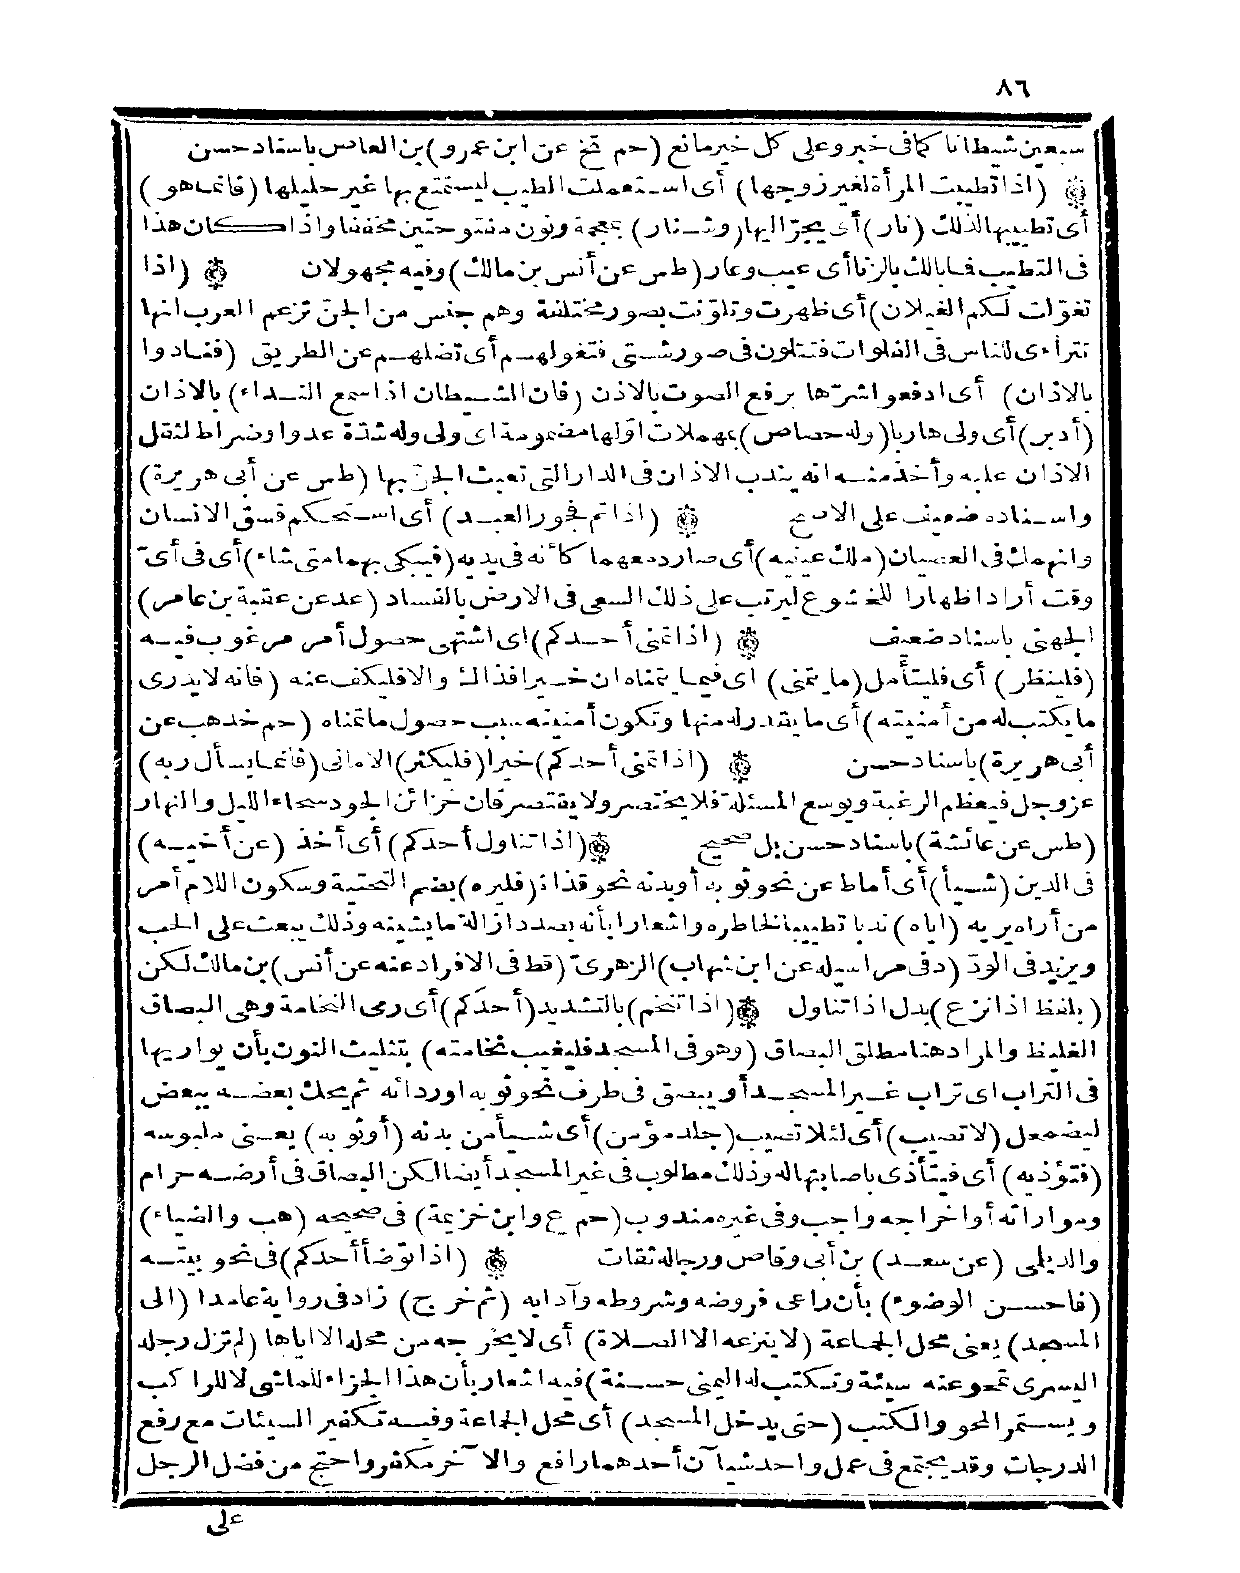 ٨٦
سبعين شيطانا كما فى خبر وعلى كل خير مانع (حم تخ عن ابن عمرو) بن العاص باسناد حسن
(اذا تطيبت المرأة لغير زوجها) أى استعملت الطيب ليستمتع بها غير حليلها (فانما هو)
أى تطيبها لذلك (نار) أى يجرّ اليها (وشنار) بمعجمة ونون مفتوحتين مخففا واذا كان هذا
فى التطيب فما بالك بالزنا أى عيب وعار (طس عن أنس بن مالك) وفيه مجهولان (اذا
تغوّلت لكم الغيلان) أى ظهرت وتلوّنت بصور مختلفة وهم جنس من الجن تزعم العرب انها
تتراءى للناس فى الفلوات فتتلون فى صور شتى فتغولهم أى تضلهم عن الطريق (فنادوا
بالاذان) أى ادفعوا شرّها برفع الصوت بالاذن (فان الشيطان اذا سمع النداء) بالاذان
(أدبر) أى ولى هاربا (وله حصاص) بمهملات اوّلها مضمومة اى ولى وله شدّة عدو اوضراط لثقل
الاذان عليه وأخذ منه انه يندب الاذان فى الدار التى تعبث الجن بها (طس عن أبى هريرة)
واسناده ضعيف على الاصح (اذا تم فجور العبد) أى استحكم فسق الانسان
وانهمك فى العصيان (ملك عينيه) أى صار دمعهما كأنه فى يديه (فيبكى بهما متى شاء) أى فى أىّ
وقت أراد اظهارا للخشوع ليرتب على ذلك السعى فى الارض بالفساد (عد عن عقبة بن عامر)
الجهنى باسناد ضعيف (اذا تمنى أحدكم) اى اشتهى حصول أمر مرغوب فيه
(فلينظر) أى فليتأمل (ما يتمنى) اى فيما يتمناه ان خيرا فذاك والا فليكف عنه (فانه لا يدرى
ما يكتب له من أمنيته) أى ما يقدر له منها وتكون أمنيته سبب حصول ما تمناه (حم خد هب عن
أبى هريرة) باسناد حسن (اذا تمنى أحدكم) خيرا (فليكثر) الامانى (فانما يسأل ربه)
عز وجل فيعظم الرغبة ويوسع المسئلة فلا يختصر ولا يقتصر فان خزائن الجود سحاء الليل والنهار
(طس عن عائشة) باسناد حسن بل صحيح (اذا تناول أحدكم) أى أخذ (عن أخيه)
فى الدين (شيأ) أى أماط عن نحو ثوبه أو بدنه نحو قذاة (فليره) بضم التحتية وسكون اللام أمر
من أراه يريه (اياه) ندبا تطييبا لخاطره واشعارا بأنه بصدد ازالة ما يشينه وذلك يبعث على الحب
ويزيد فى الودّ (د فى مراسيله عن ابن شهاب) الزهرىّ (قط فى الافراد عنه عن أنس) بن مالك لكن
(بلفظ اذا نزع) بدل اذا تناول (اذا تنخم) بالتشديد (أحدكم) أى رمى النخامة وهى البصاق
الغليظ والمراد هنا مطلق البصاق (وهو فى المسجد فليغيب نخامته) بتثليث النون بأن يواريها
فى التراب اى تراب غير المسجد أو يبصق فى طرف نحو ثوبه او ردائه ثم يحك بعضه ببعض
ليضمحل (لا تصيب) أى لئلا تصيب (جلد مؤمن) أى شيأ من بدنه (أو ثوبه) يعنى ملبوسه
(فتؤذيه) أى فيتأذى باصابتها له وذلك مطلوب فى غير المسجد أيضا لكن البصاق فى أرضه حرام
ومواراته أو اخراجه واجب وفى غيره مندوب (حم ع وابن خزيمة) فى صحيحه (هب والضياء)
والديلمى (عن سعد) بن أبى وقاص ورجاله ثقات (اذا توضأ أحدكم) فى نحو بيته
(فاحسن الوضوء) بأن راعى فروضه وشروطه وآدابه (ثم خرج) زاد فى رواية عامدا (الى
المسجد) يعنى محل الجماعة (لا ينزعه الا الصلاة) أى لا يخرجه من محله الا اياها (لم تزل رجله
اليسرى تمحو عنه سيئة وتكتب له اليمنى حسنة) فيه اشعار بأن هذا الجزاء للماشى لا للراكب
ويستمر المحو والكتب (حتى يدخل المسجد) أى محل الجماعة وفيه تكفير السيئات مع رفع
الدرجات وقد يجتمع فى عمل واحد شيآن أحدهما رافع والآخر مكفر واحتج من فضل الرجل
على